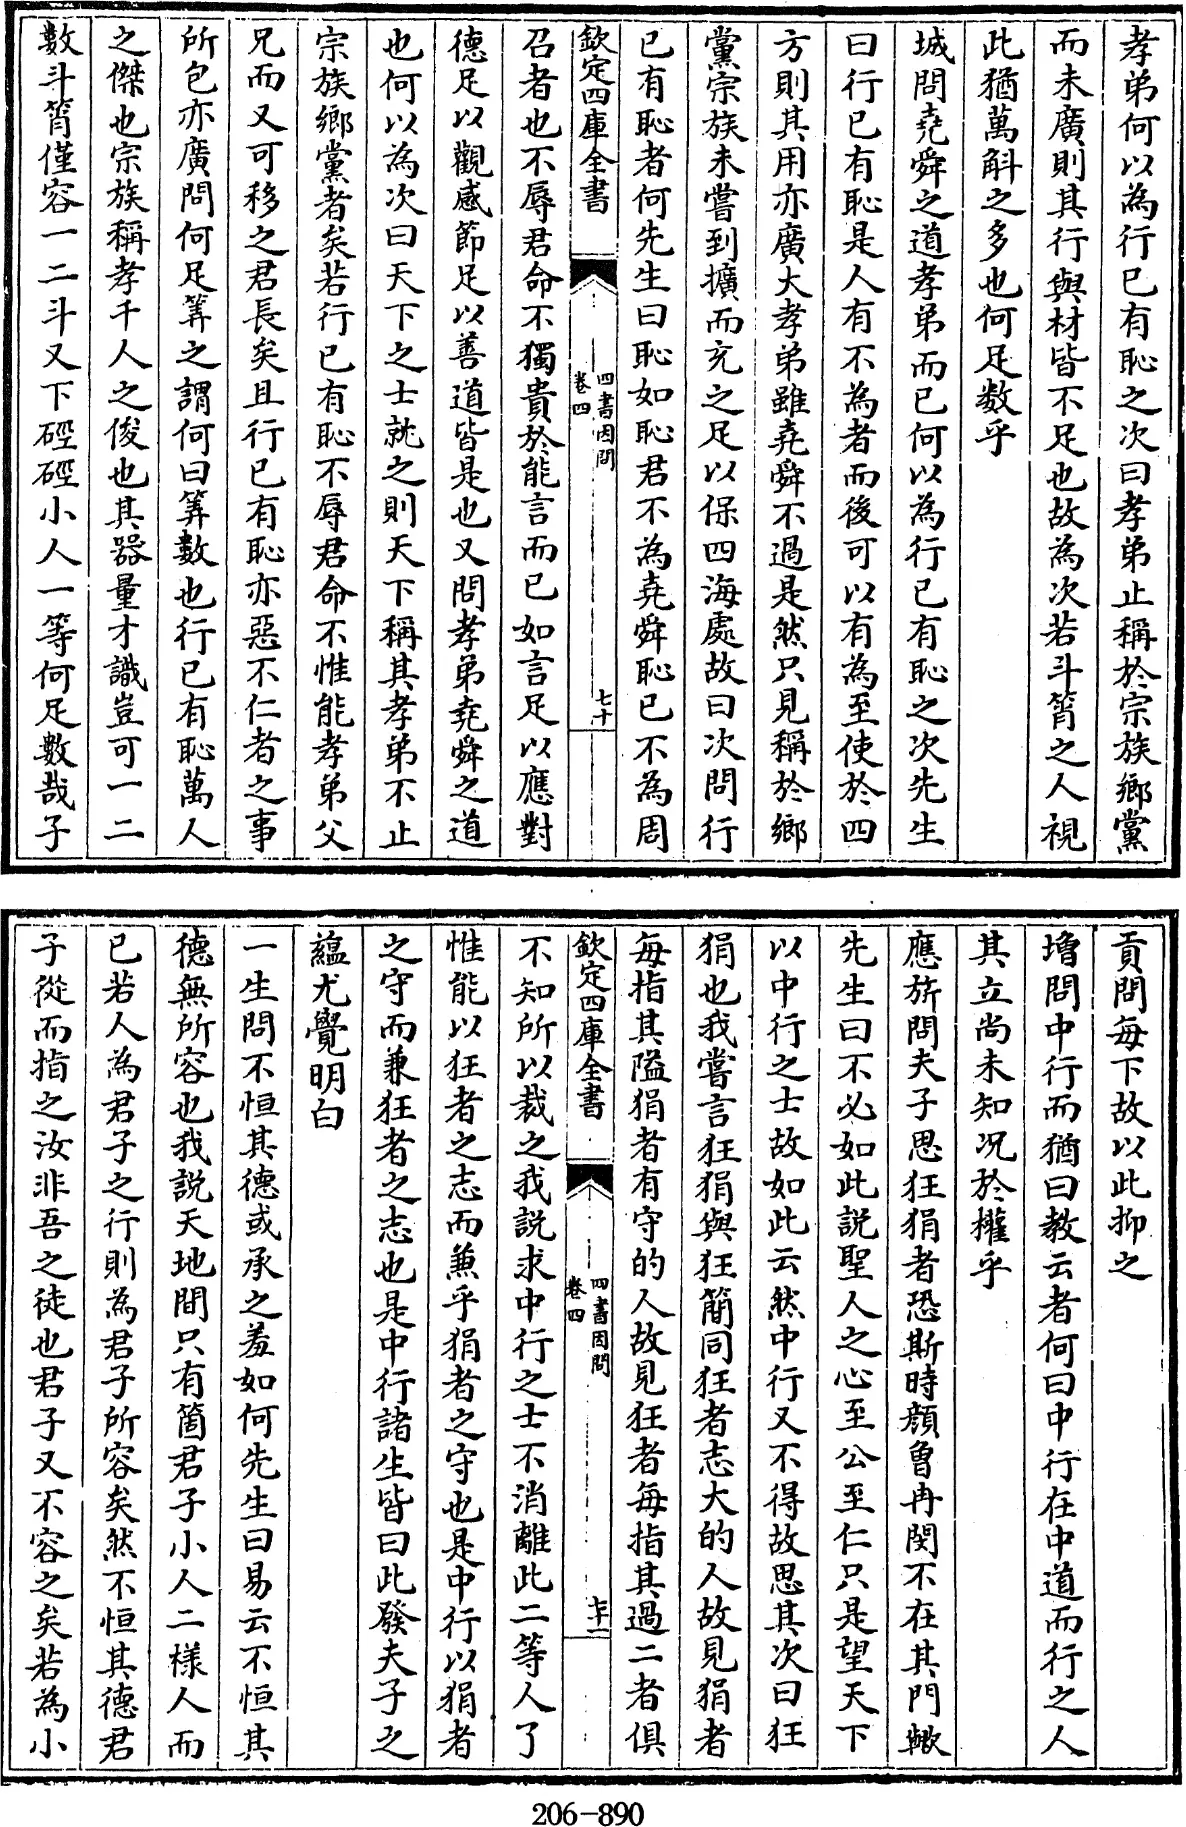 孝弟何以為行已有恥之次曰孝弟止稱於宗族鄉黨
而未廣則其行與材皆不足也故為次若斗筲之人視
此猶萬斛之多也何足数乎
城問堯舜之道孝弟而已何以為行已有恥之次先生
曰行已有恥是人有不為者而後可以有為至使於四
方則其用亦廣大孝弟雖堯舜不過是然只見稱於鄉
黨宗族未嘗到擴而充之足以保四海處故曰次問行
已有恥者何先生曰恥如恥君不為堯舜恥已不為周
欽定四庫全書
四書因問
卷四
七十
召者也不辱君命不獨貴於能言而已如言足以應對
德足以觀感節足以善道皆是也又問孝弟堯舜之道
也何以為次曰天下之士就之則天下稱其孝弟不止
宗族鄉黨者矣若行已有恥不辱君命不惟能孝弟父
兄而又可移之君長矣且行已有恥亦惡不仁者之事
所包亦廣問何足筭之謂何曰筭數也行已有恥萬人
之傑也宗族稱孝千人之俊也其器量才識豈可一二
數斗筲僅容一二斗又下硜硜小人一等何足數哉子
貢問每下故以此抑之
墫問中行而猶曰教云者何曰中行在中道而行之人
其立尚未知况於權乎
應旂問夫子思狂狷者恐斯時顔曾冉閔不在其門歟
先生曰不必如此説聖人之心至公至仁只是望天下
以中行之士故如此云然中行又不得故思其次曰狂
狷也我嘗言狂狷與狂簡同狂者志大的人故見狷者
每指其隘狷者有守的人故見狂者每指其過二者俱
欽定四庫全書
四書因問
卷四
七十一
不知所以裁之我説求中行之士不消離此二等人了
惟能以狂者之志而兼乎狷者之守也是中行以狷者
之守而兼狂者之志也是中行諸生皆曰此發夫子之
蘊尤覺明白
一生問不恒其德或承之羞如何先生曰易云不恒其
德無所容也我説天地間只有箇君子小人二様人而
已若人為君子之行則為君子所容矣然不恒其德君
子從而指之汝非吾之徒也君子又不容之矣若為小
206-890